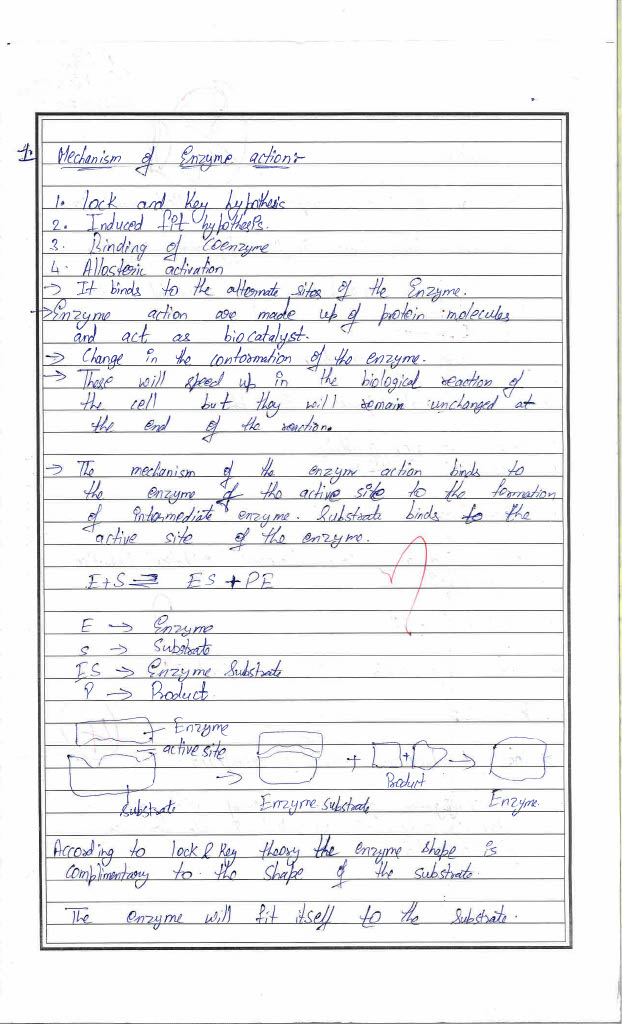 1. Mechanism of Enzyme action:-
1. lock and Key hypothesis
2. Induced fit hypothesis.
3. Binding of Coenzyme
4. Allosteric activation
→ It binds to the alternate sites of the Enzyme.
→ Enzyme action are made up of protein molecules
and act as biocatalyst.
→ Change in the conformation of the enzyme.
→ These will speed up in the biological reaction of
the cell but they will remain unchanged at
the end of the reaction.
→ The mechanism of the enzyme action binds to
the enzyme of the active site to the formation
of intermediate enzyme. Substrate binds to the
active site of the enzyme.
E+S ⇌ ES + PE
E → Enzyme
S → Substrate
ES → Enzyme Substrate
P → Product.
Enzyme
active site
+ + →
→ Product
Substrate Enzyme Substrate Enzyme.
According to lock & Key theory the enzyme shape is
Complimentary to the shape of the substrate.
The enzyme will fit itself to the Substrate.